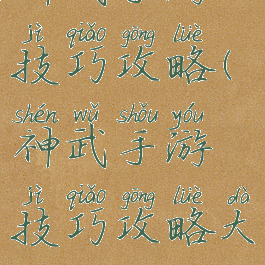 jì qiǎo gōng lüè
技巧攻略(
shén wǔ shǒu yóu
神武手游
jì qiǎo gōng lüè dà
技巧攻略大